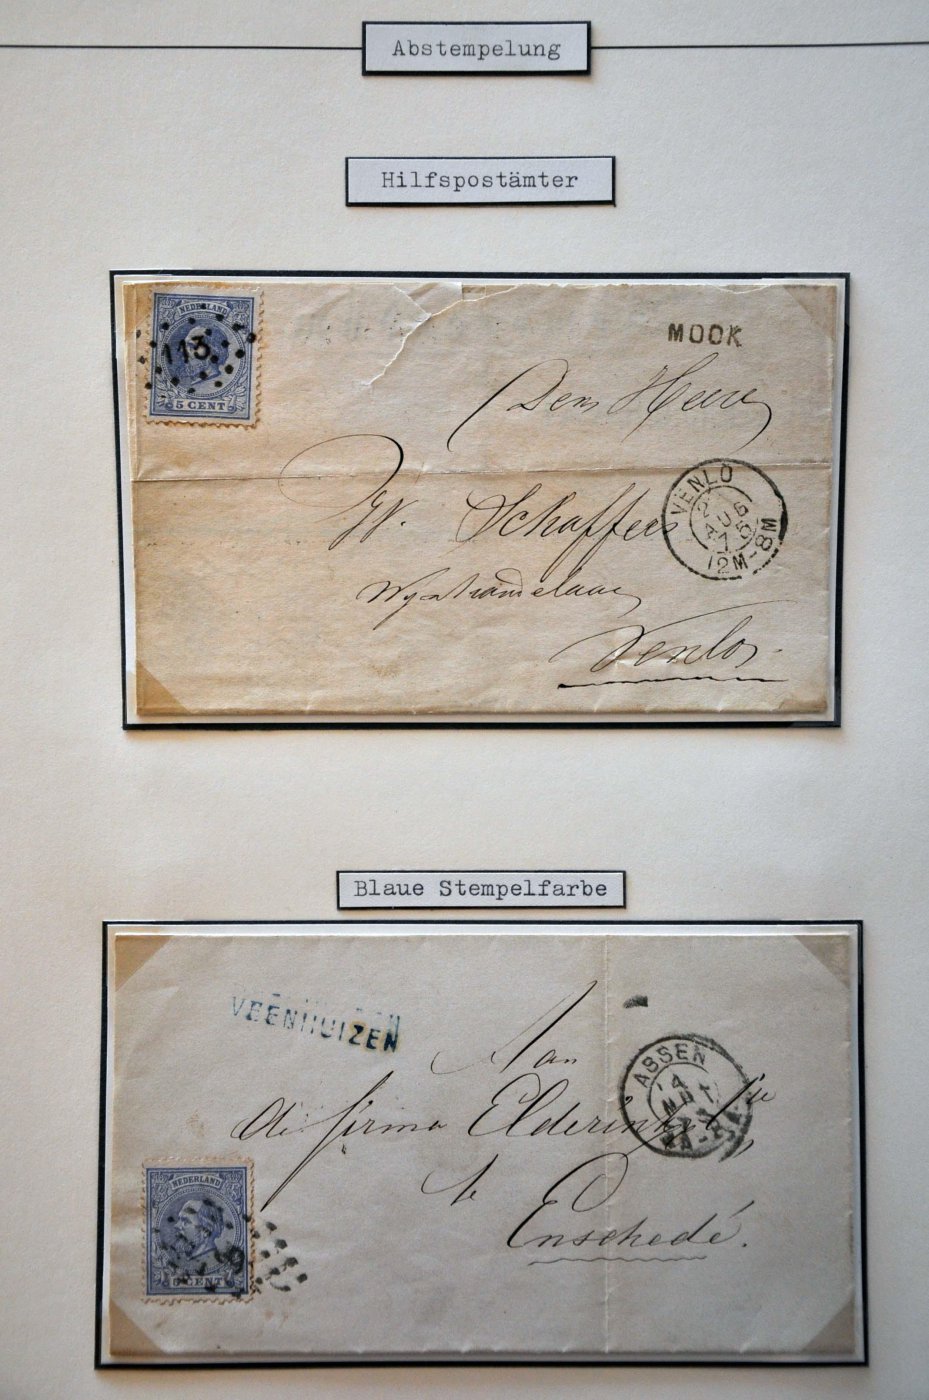 Abstempelung
Hilfspostämter
NEDERLAND
113
5 CENT
MOOK
Den Heere
W. Schaffers
VENLO
12M-8M
Venlo.
Blaue Stempelfarbe
VEENHUIZEN
Aan
de firma Elderink
te
Enschedé.
ASSEN
NEDERLAND
5 CENT